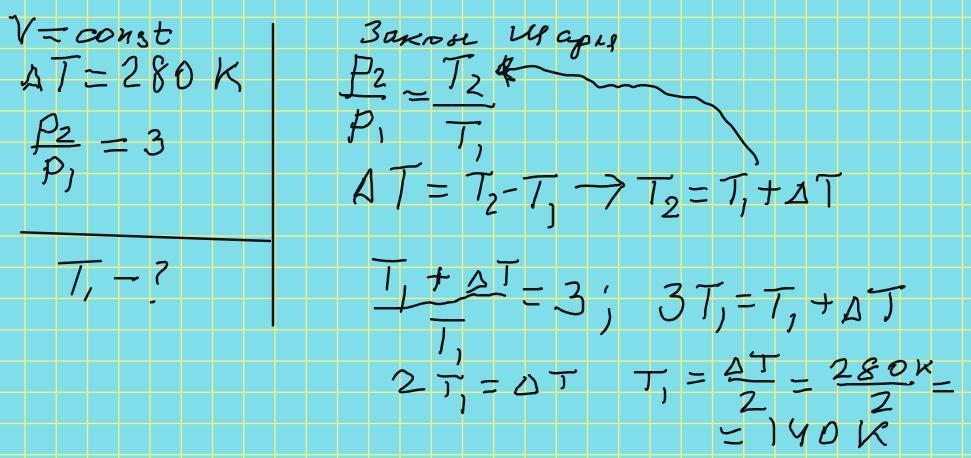 V = const
ΔT = 280 K
P₂/P₁ = 3
T₁ - ?
Закон Шарля
P₂/P₁ = T₂/T₁
ΔT = T₂ - T₁ → T₂ = T₁ + ΔT
(T₁ + ΔT)/T₁ = 3 ; 3T₁ = T₁ + ΔT
2T₁ = ΔT T₁ = ΔT/2 = 280 K/2 =
= 140 K